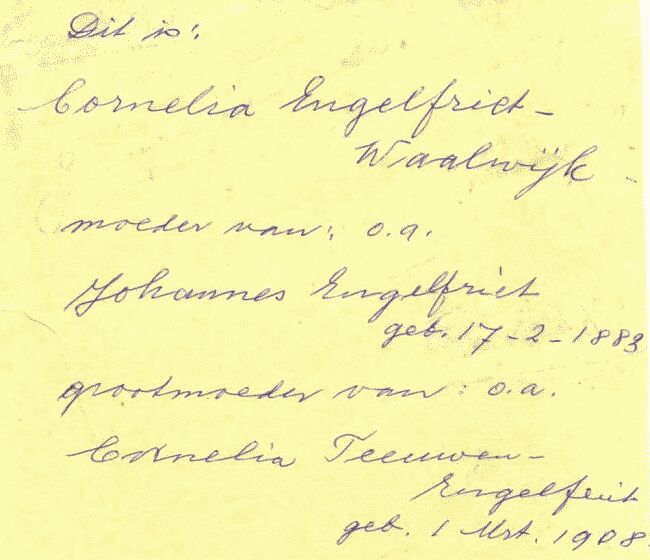 Dit is:
Cornelia Engelfriet-
Waalwijk -
moeder van: o.a.
Johannes Engelfriet
geb. 17-2-1883
grootmoeder van: o.a.
Cornelia Teeuwen-
Engelfriet
geb. 1 Mrt. 1908.